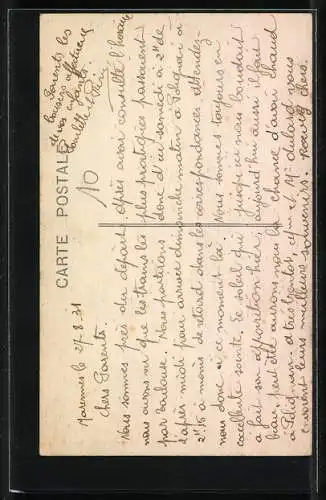 CARTE POSTALE
10
Marennes le 27-8-31
Chers Parents.
Nous sommes près du départ. Après avoir consulté l'horaire
nous avons vu que les trains les plus pratiques passaient
par Toulouse. Nous partirons donc d'ici samedi à 2h de
l'après midi pour arriver dimanche matin à
2h15 à moins de retard dans les correspondances attendez-
nous donc à ce moment là. Nous sommes toujours en
excellente santé. Le soleil qui jusqu'ici nous boudait
a fait son apparition hier, aujourd'hui aussi il fait
beau, peut être aurons nous la chance d'avoir chaud
à et très bientôt, et Mme Dulard nous
envoient leurs meilleurs souvenirs. Recevez chers
Parents les
baisers affectueux
de vos enfants
et